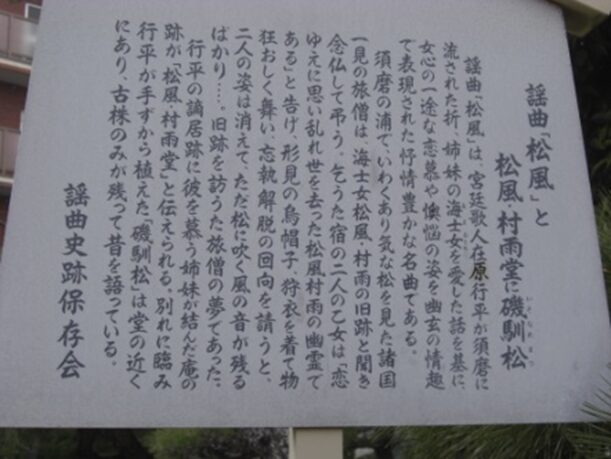 謡曲「松風」と
松風・村雨堂に磯馴松
いそなれまつ
謡曲「松風」は、宮廷歌人在原行平が須磨に
流された折、姉妹の海士女を愛した話を基に、
女心の一途な恋慕や懊悩の姿を幽玄の情趣
で表現された抒情豊かな名曲である。
須磨の浦で、いわくあり気な松を見た諸国
一見の旅僧は、海士女松風・村雨の旧跡と聞き
念仏して弔う。乞うた宿の二人の乙女は「恋
ゆえに思い乱れ世を去った松風村雨の幽霊で
ある」と告げ、形見の烏帽子、狩衣を着て物
狂おしく舞い、妄執解脱の回向を請うと、
二人の姿は消えて、ただ松に吹く風の音が残る
ばかり…。旧跡を訪うた旅僧の夢であった。
行平の謫居跡に彼を慕う姉妹が結んだ庵の
跡が「松風・村雨堂」と伝えられる。別れに臨み
行平が手ずから植えた「磯馴松」は堂の近く
にあり、古株のみが残って昔を語っている。
謡曲史跡保存会